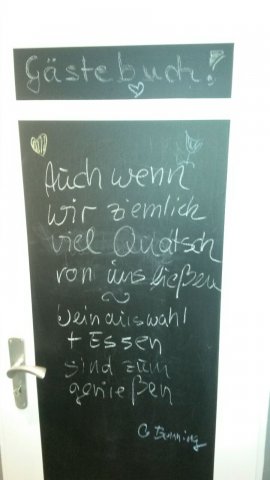 Gästebuch!
Auch wenn
wir ziemlich
viel Quatsch
von uns ließen
~
Weinauswahl
+ Essen
sind zum
genießen